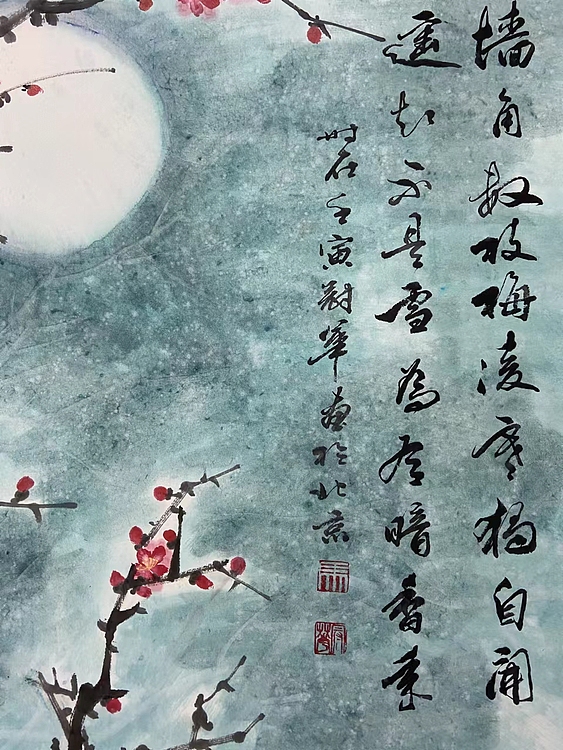 墙角数枝梅凌寒獨自開
遥知不是雪為有暗香来
时在壬寅華画於北京